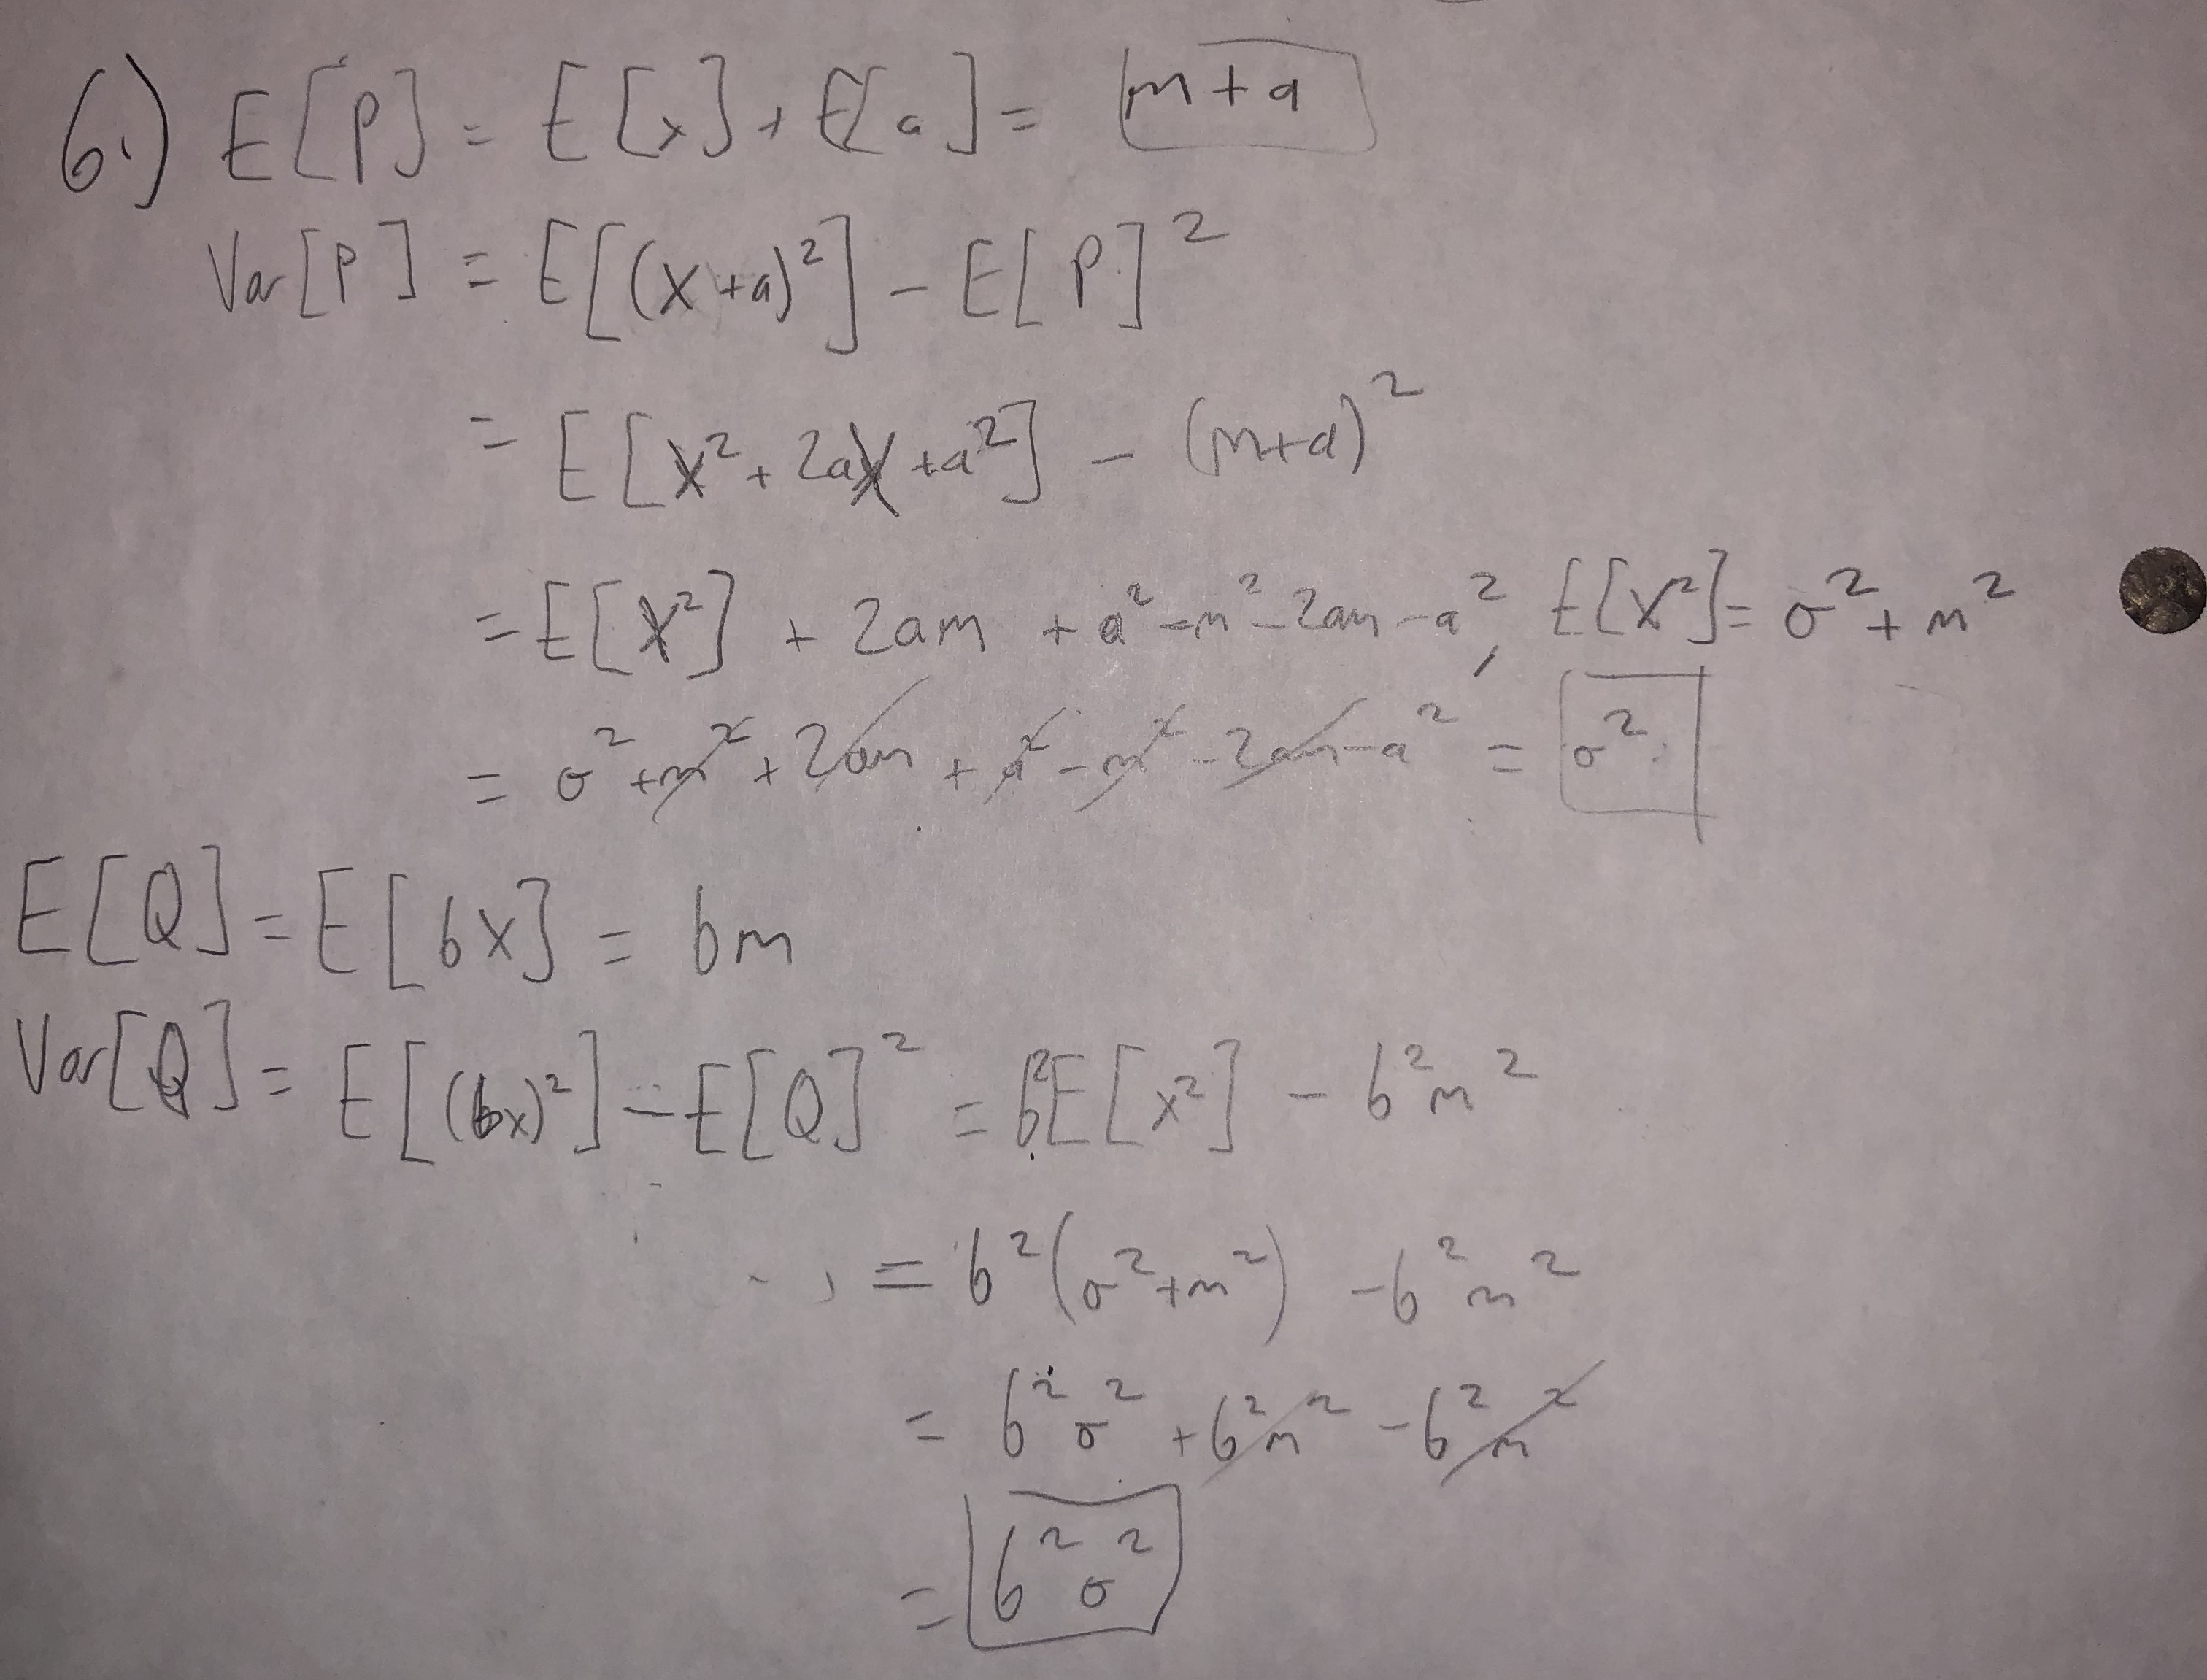 6.) E[P] = E[x] + E[a] = m + a
Var[P] = E[(x+a)²] - E[P]²
= E[X² + 2aX + a²] - (m+a)²
= E[X²] + 2am + a² - m² - 2am - a², E[X²] = σ² + m²
= σ² + m² + 2am + a² - m² - 2am - a² = σ²
E[Q] = E[bX] = bm
Var[Q] = E[(bx)²] - E[Q]² = b²E[x²] - b²m²
= b²(σ² + m²) - b²m²
= b²σ² + b²m² - b²m²
= b²σ²